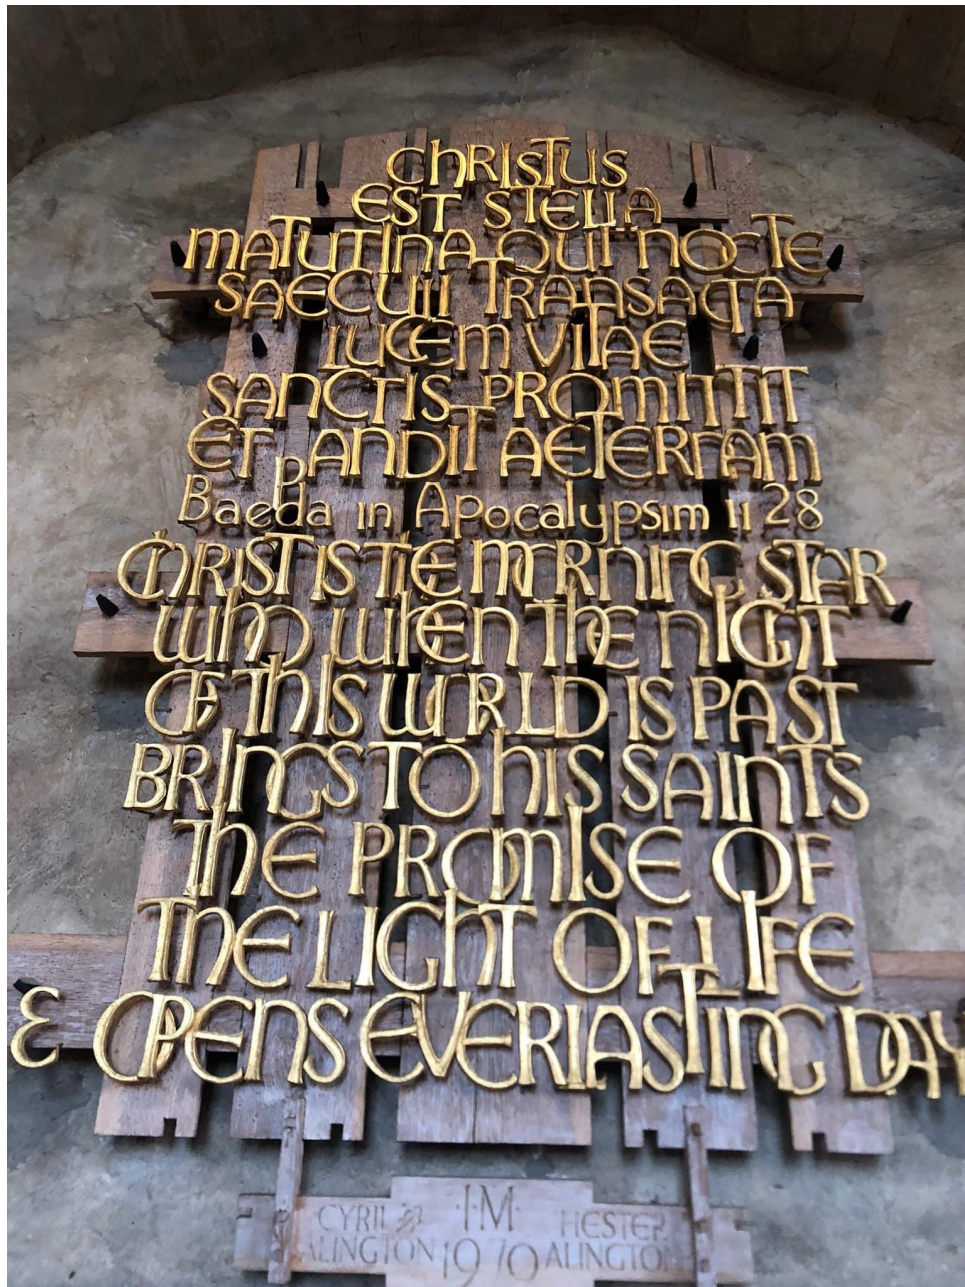 CHRISTUS
EST STELLA
MATUTINA QUI NOCTE
SAECULI TRANSACTA
LUCEM VITAE
SANCTIS PROMITTIT
ET PANDIT AETERNAM
Baeda in Apocalypsim ii 28
CHRIST IS THE MORNING STAR
WHO WHEN THE NIGHT
OF THIS WORLD IS PAST
BRINGS TO HIS SAINTS
THE PROMISE OF
THE LIGHT OF LIFE
& OPENS EVERLASTING DAY
CYRIL & ·I·M· HESTER
ALINGTON 1970 ALINGTON